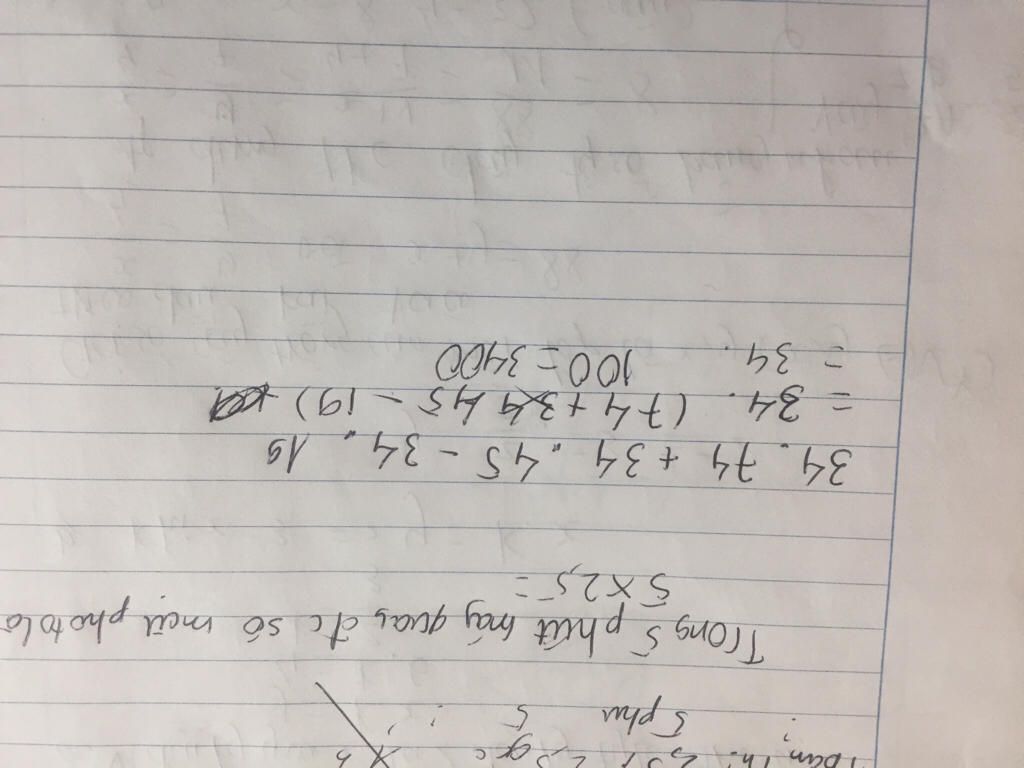 5 phút 5
Trong 5 phút máy quay đc số mét photo là
5 x 2,5 =
34 . 74 + 34 . 45 - 34 . 19
= 34 . (74 + 45 - 19)
= 34 . 100 = 3400